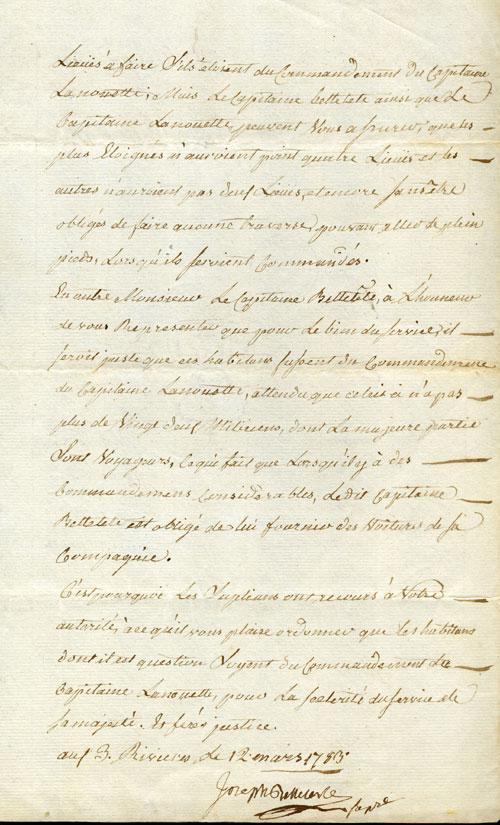 Lieuës a faire S'ils etoient du Commandement du Capitaine
Lanouette; Mais Le Capitaine bettelete ainsi que Le
Capitaine Lanouette, peuvent Vous assurer, que les
plus Eloignés n'auroient point quatre Lieuës et les
autres n'auroient pas deux Lieuës, et encore sans être
obligés de faire aucune traverse, pouvant aller de plein
pieds, Lorsqu'ils seroient Commandés.
En outre Monsieur Le Capitaine Bettelete, à L'honneur
de vous Representer que pour Le bien du service, il
seroit juste que ces habitans fussent du Commandement
du Capitaine Lanouette, attendu que celui ci n'a pas
plus de Vingt deux Miliciens, dont La majeure partie
Sont Voyageurs, Ce qui fait que Lorsqu'il y à des
Commandemens Considerables, Le dit Capitaine
Bettelete est obligé de lui fournir des Voitures de sa
Compagnie.
C'est pourquoi Les Suplians ont recours à Votre
autorité, à ce qu'il vous plaise ordonner que les habitans
dont il est question Soyent du Commandement du
Capitaine Lanouette, pour La Celerité du service de
sa majesté. Et ferés justice.
aux 3. Rivieres, Le 12. mars 1783.
Joseph